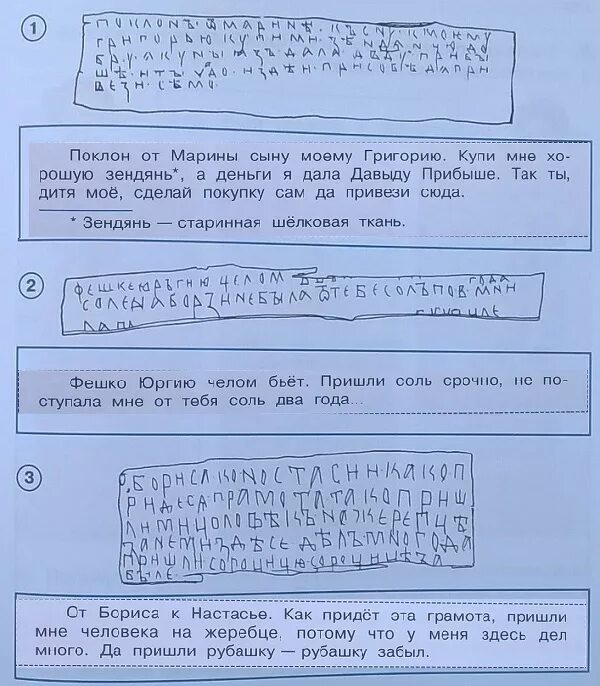 1
ПОКЛОНЪ ѾМАРИНѢ . КЪСНУ . КМОЕМУ
ГРИГОРЬЮ КУПИМИ . ЗѢНДАНЦЮ ДО
БРУ . АКУНЫ ЯЗЪ ДАЛА ДѢДУ ПРИБЫ
ШѢ . ИТЪ ЧАДО . ИЗДѢИ ПРИСОБѢ ДАПРИ
ВЕЗИ . СѢМО
Поклон от Марины сыну моему Григорию. Купи мне хо-
рошую зендянь*, а деньги я дала Давыду Прибыше. Так ты,
дитя моё, сделай покупку сам да привези сюда.
* Зендянь — старинная шёлковая ткань.
2
ФЕШКЕЮРЪГИЮ ЦЕЛОМ ГОДА
НЕБЫЛА ѾТЕБЕ СОЛЪ
Фешко Юргию челом бьёт. Пришли соль срочно, не по-
ступала мне от тебя соль два года...
3
ѾБОРИСА КОNОСТАСИИ . КАКО П
РИДЕСА ГРАМОТА ТАКО ПРИШ
ЛИ МИ ЦОЛОВѢКЪ NАЖЕРЕПЦѢ
ЗАNЕМИ ЗДѢСЕ ДѢЛЪ МNОГО ДА
ПРИШЛИ СОРОЦИЦЮ СОРОЦИЦѢ ЗА
БЫЛЕ
От Бориса к Настасье. Как придёт эта грамота, пришли
мне человека на жеребце, потому что у меня здесь дел
много. Да пришли рубашку — рубашку забыл.